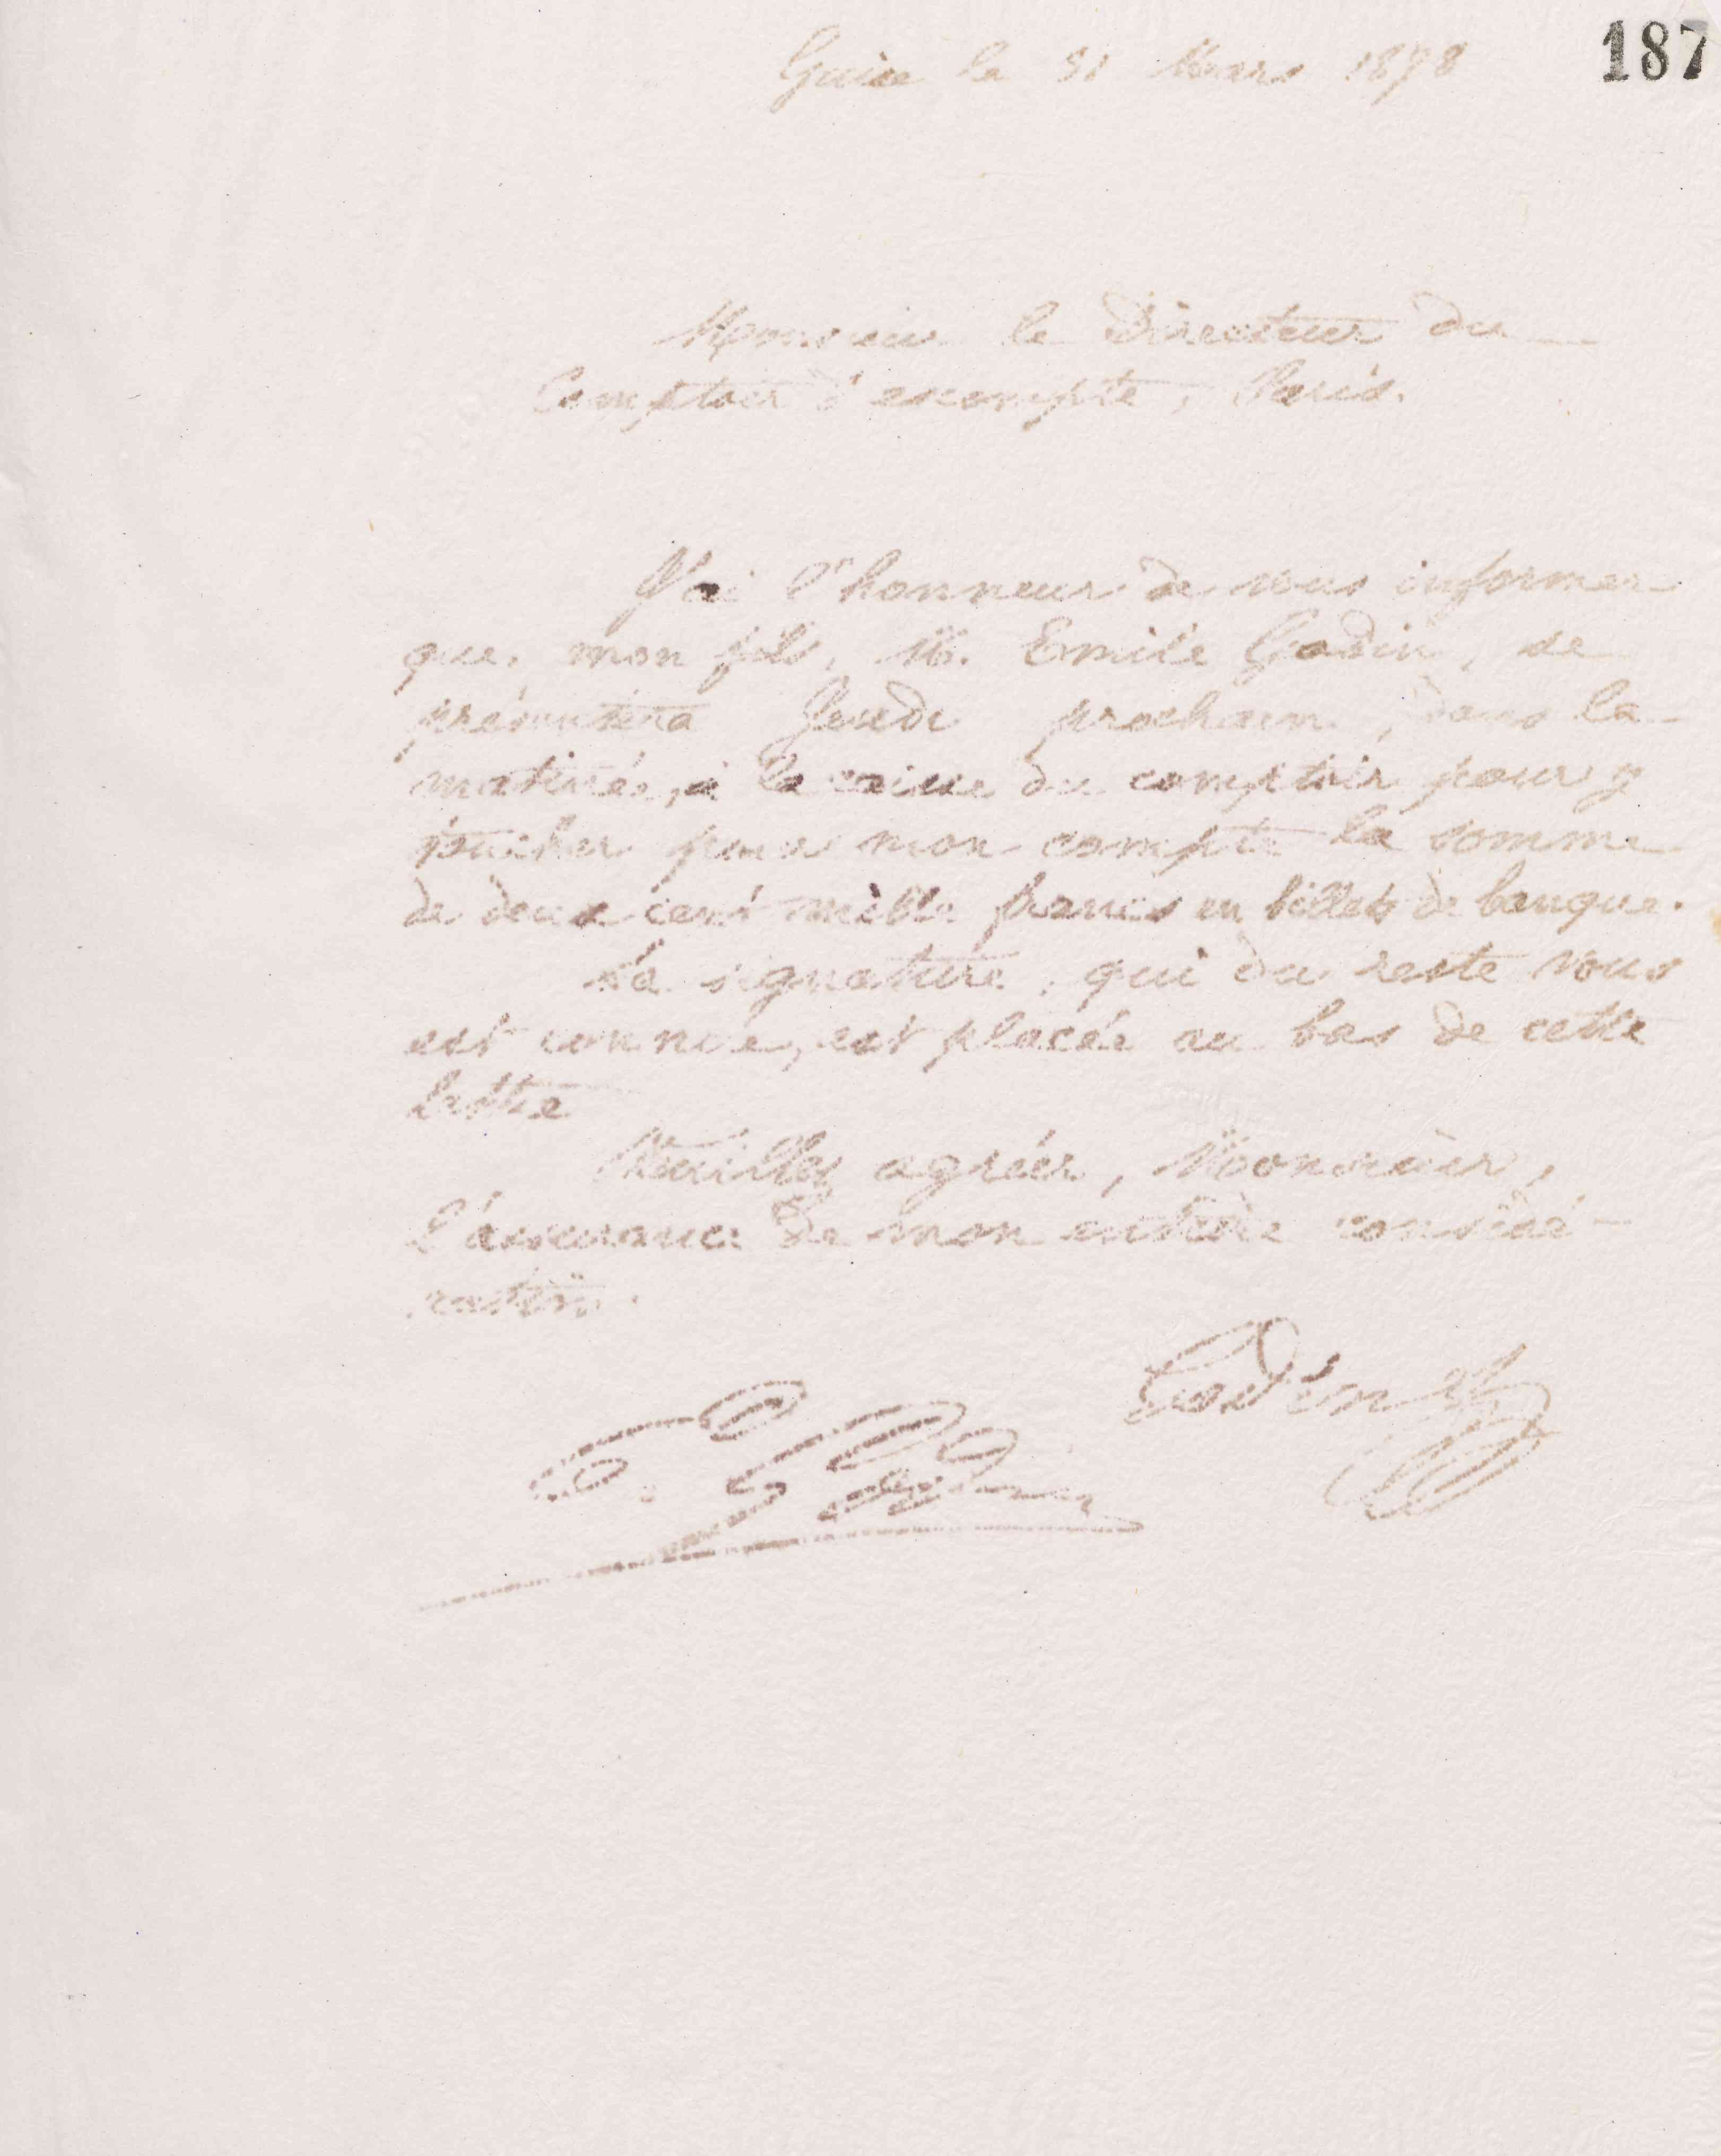 187
Guise le 31 Mars 1878
Monsieur le Directeur du
Comptoir d'escompte, Paris.
J'ai l'honneur de vous informer
que, mon fils, M. Emile Godin, se
présentera Jeudi prochain, dans la
matinée, à la caisse du comptoir pour y
toucher pour mon compte la somme
de deux cent mille francs en billets de banque.
Sa signature, qui du reste vous
est connue, est placée au bas de cette
lettre
Veuillez agréer, Monsieur,
l'assurance de mon entière considé-
ration.
Godin